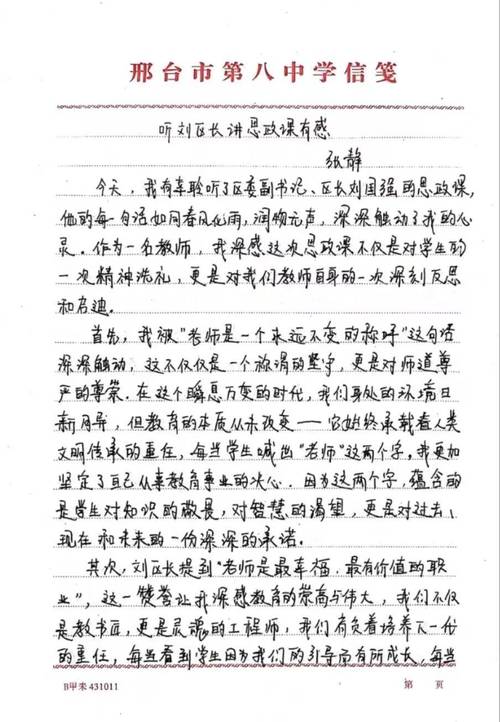 邢台市第八中学信笺
听刘区长讲思政课有感
张静
今天，我有幸聆听了区委副书记、区长刘国强的思政课，
他的每一句话如同春风化雨，润物无声，深深触动了我的心
灵。作为一名教师，我深感这次思政课不仅是对学生的
一次精神洗礼，更是对我们教师自身的一次深刻反思
和启迪。
首先，我被“老师是一个永远不变的称呼”这句话
深深触动，这不仅仅是一个称谓的坚守，更是对师道尊
严的尊崇。在这个瞬息万变的时代，我们身处的环境日
新月异，但教育的本质从未改变——它始终承载着人类
文明传承的重任，每当学生喊出“老师”这两个字，我更加
坚定了自己从事教育事业的决心。因为这两个字，蕴含的
是学生对知识的敬畏，对智慧的渴望，更是对过去、
现在和未来的一份深深的承诺。
其次，刘区长提到“老师是最幸福、最有价值的职
业”，这一赞誉让我深感教育的崇高与伟大，我们不仅
是教书匠，更是灵魂的工程师，我们肩负着培养下一代
的重任，每当看到学生因为我们的引导而有所成长，每当
B甲来431011
第 页